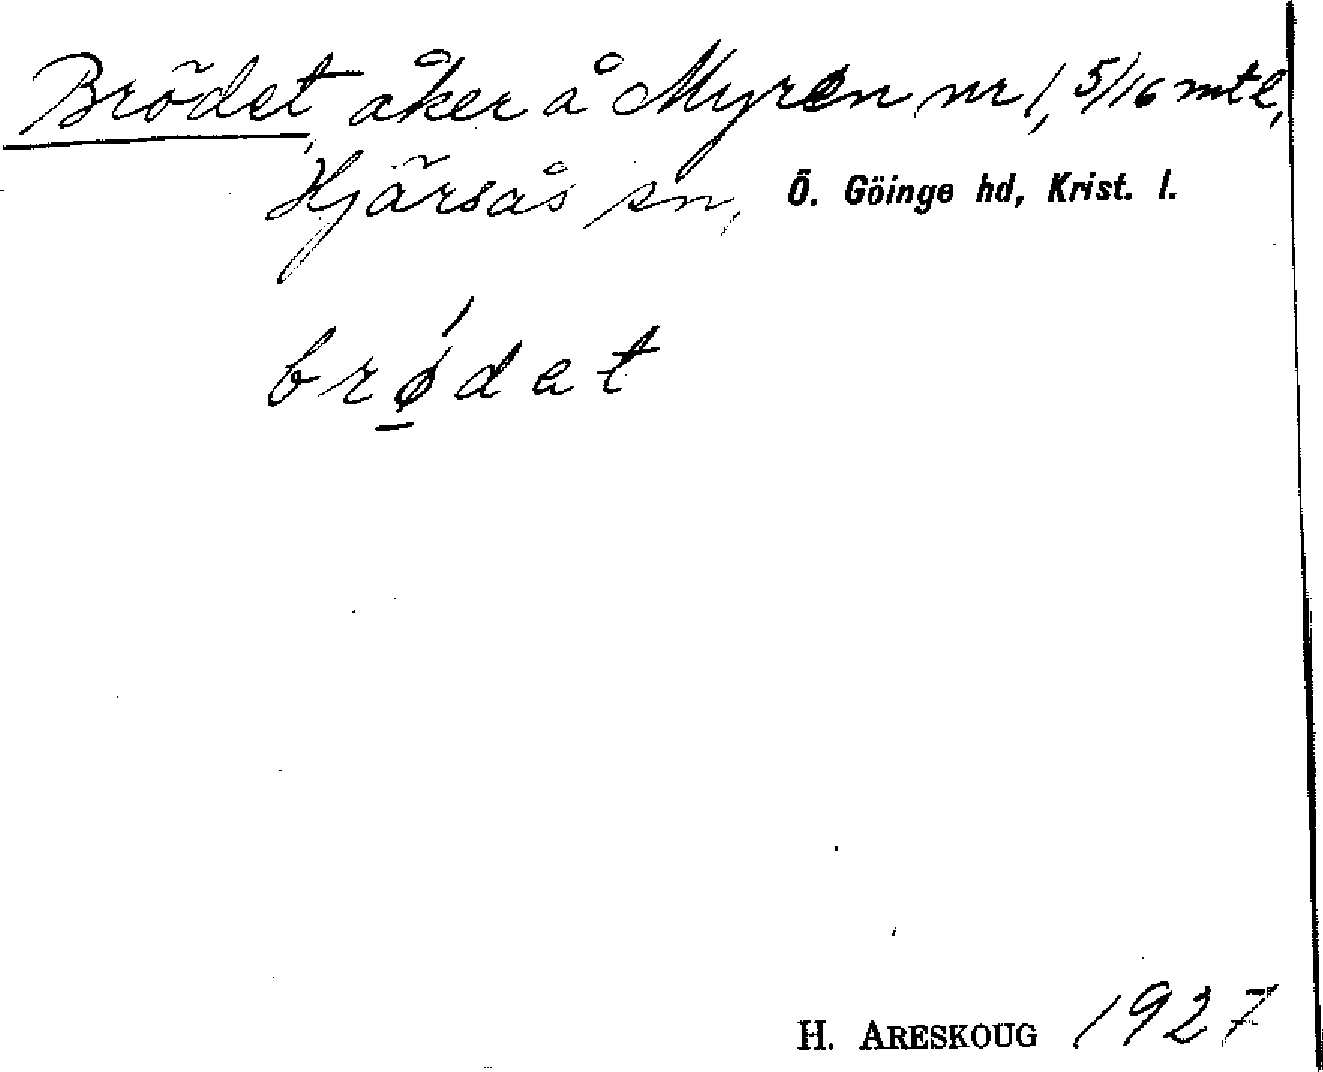 Brödet, åker å Myren nr 1, 5/16 mtl,
Hjärsås sn, Ö. Göinge hd, Krist. l.
brǿ̲dat
H. ARESKOUG 1927